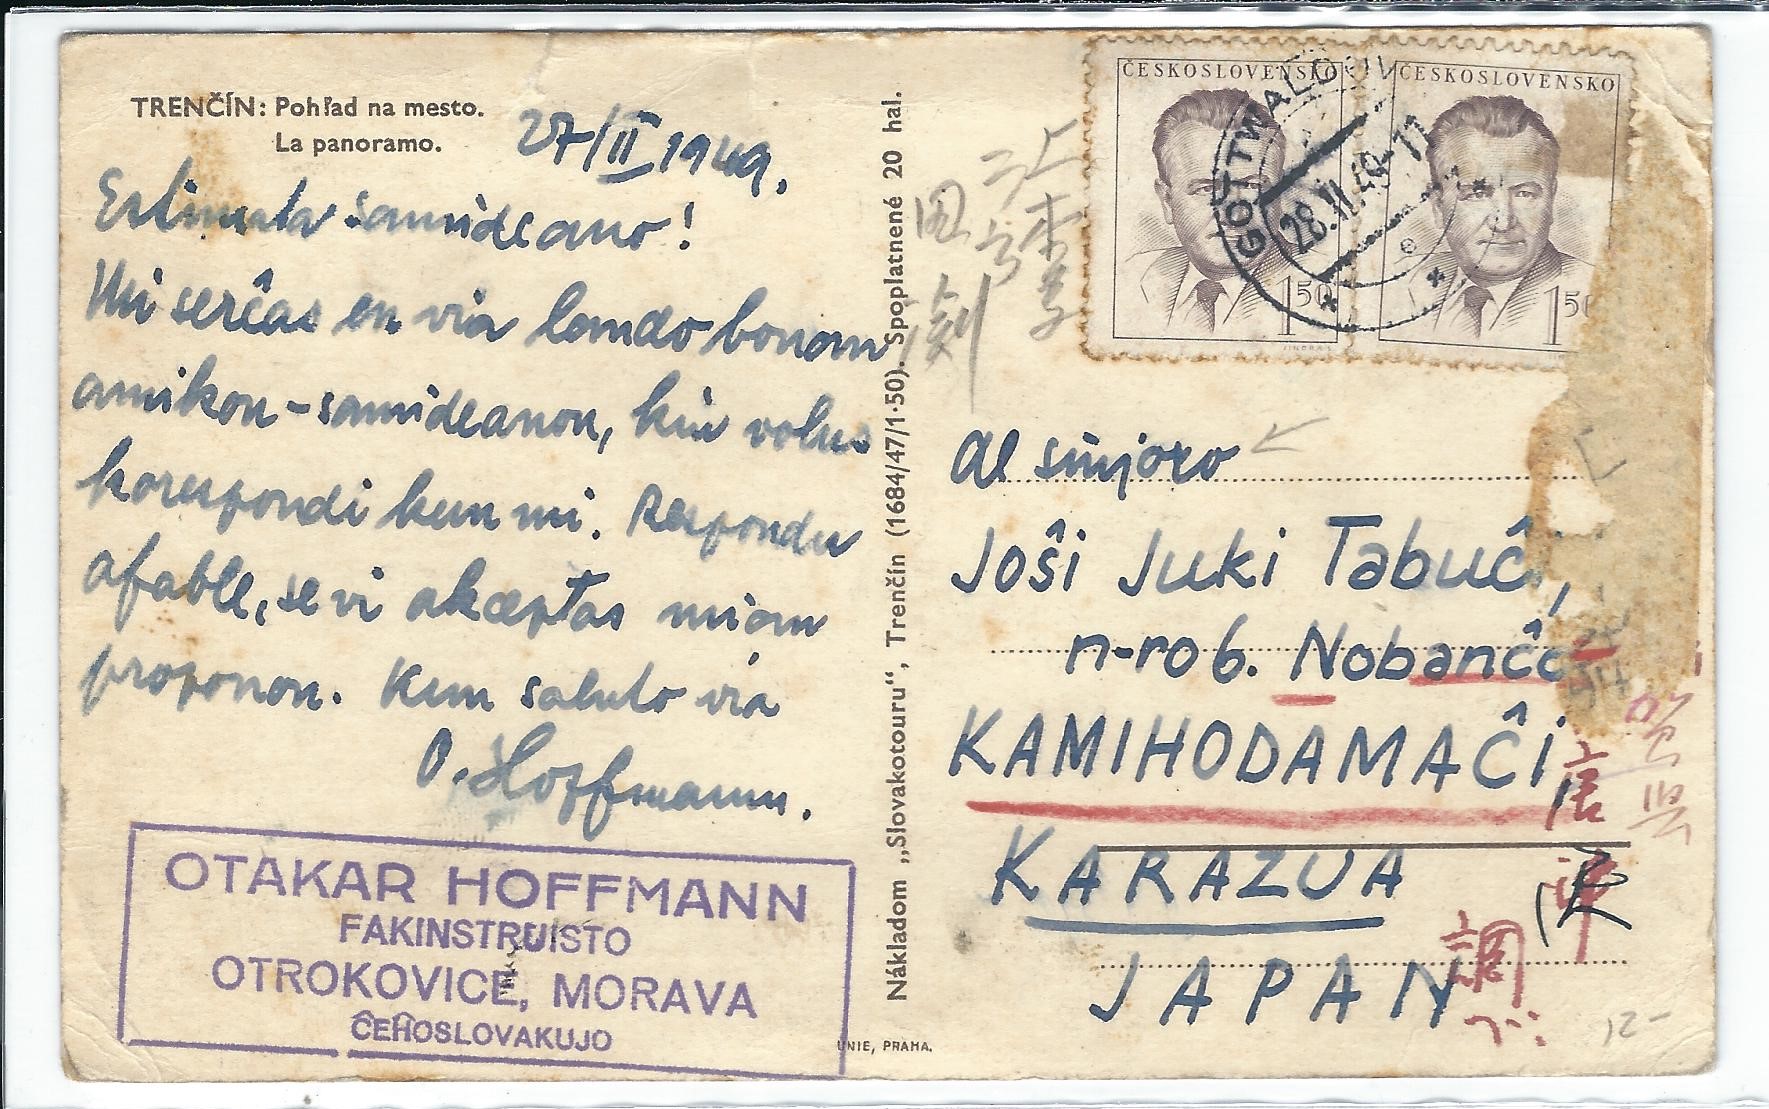 TRENČÍN: Pohľad na mesto.
La panoramo.
27/II 1949.
Estimata samideano!
Mi serĉas en via lando bonan
amikon-samideanon, kiu volus
korespondi kun mi. Respondu
afable, se vi akceptas mian
proponon. Kun saluto via
O. Hoffmann.
OTAKAR HOFFMANN
FAKINSTRUISTO
OTROKOVICE, MORAVA
ĈEĤOSLOVAKUJO
Nákladom „Slovakotouru“, Trenčín (1684/47/1·50). Spoplatnené 20 hal.
UNIE, PRAHA.
ČESKOSLOVENSKO
1 50
ČESKOSLOVENSKO
1 50
GOTTWALDOV
28.II.49-11
Al sinjoro
Joŝi Juki Tabuĉi,
n-ro 6. Nobanĉo
KAMIHODAMAĈI,
KARAZUA
JAPAN
12-